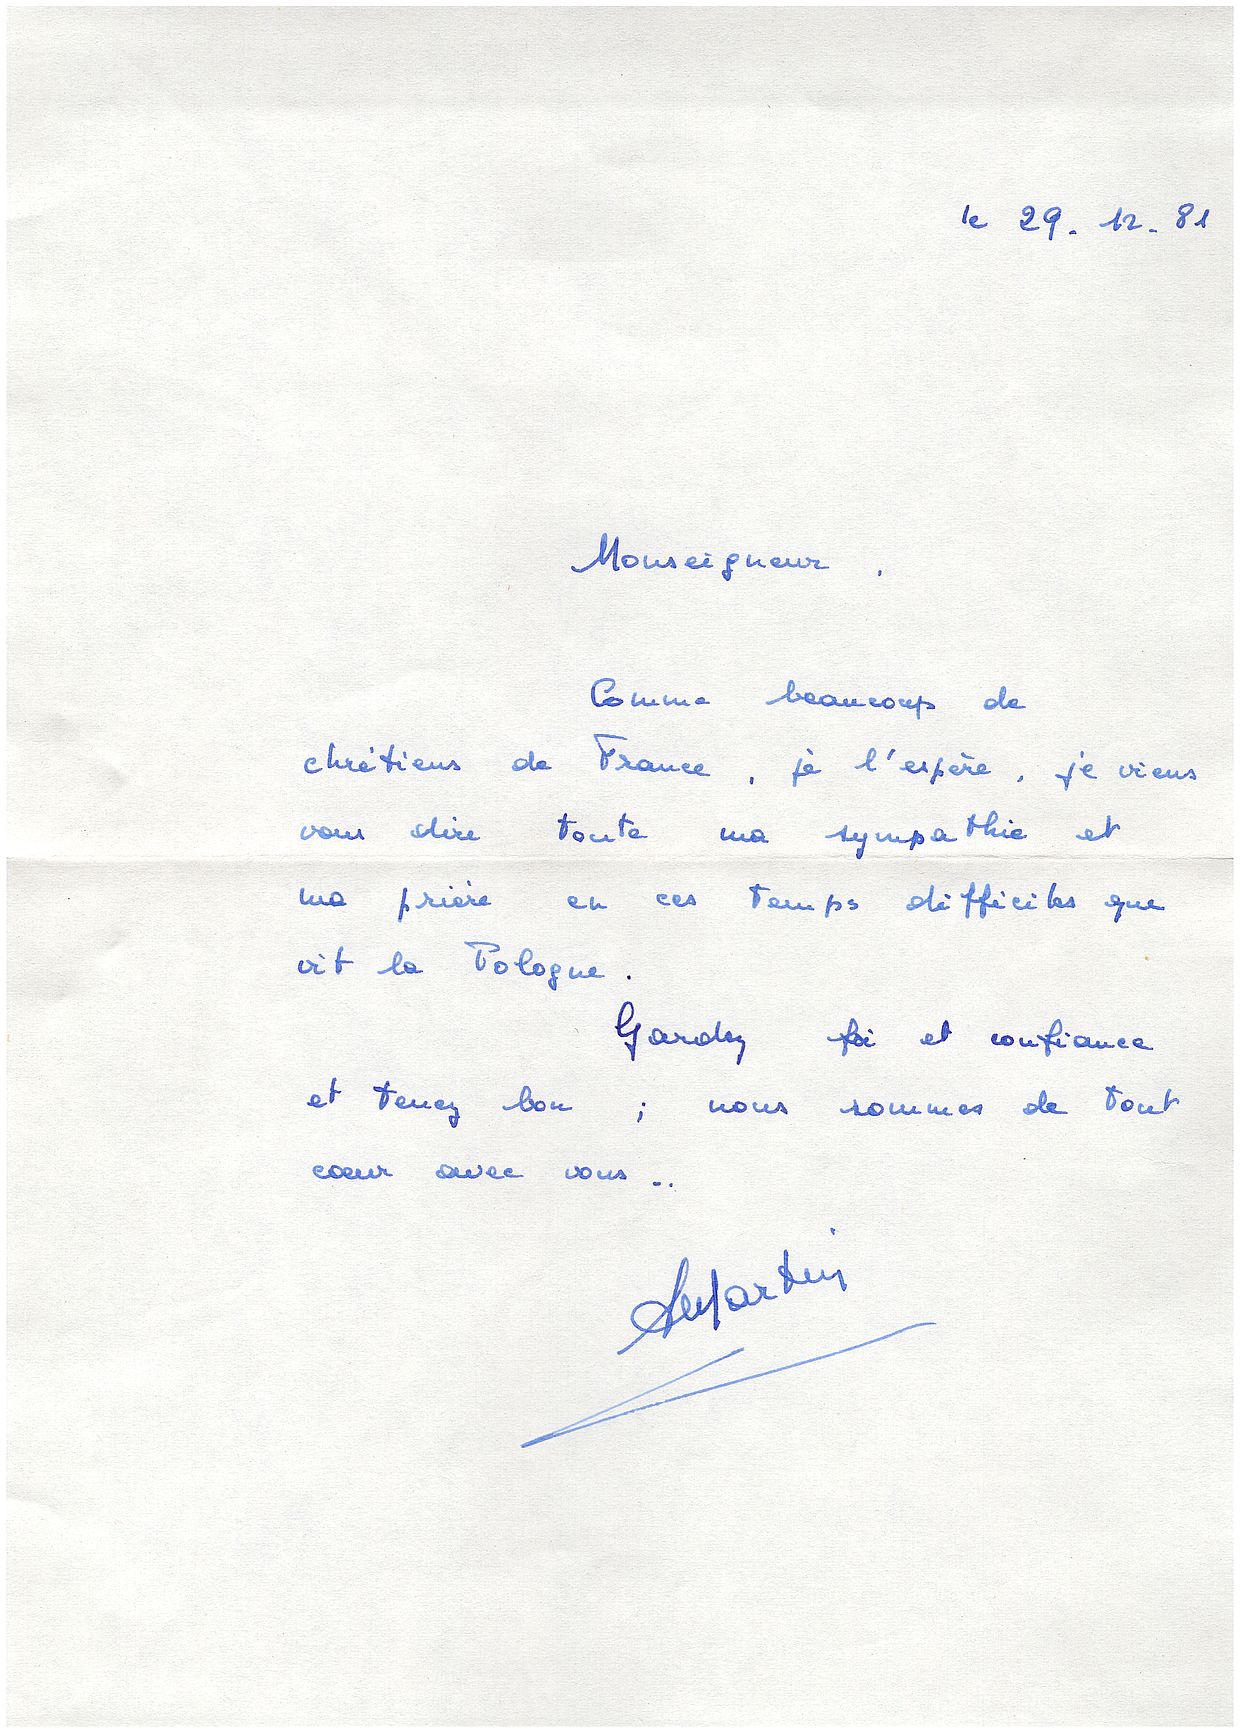 le 29. 12. 81
Monseigneur,
Comme beaucoup de
chrétiens de France, je l'espère, je viens
vous dire toute ma sympathie et
ma prière en ces temps difficiles que
vit la Pologne.
Gardez foi et confiance
et tenez bon ; nous sommes de tout
cœur avec vous...